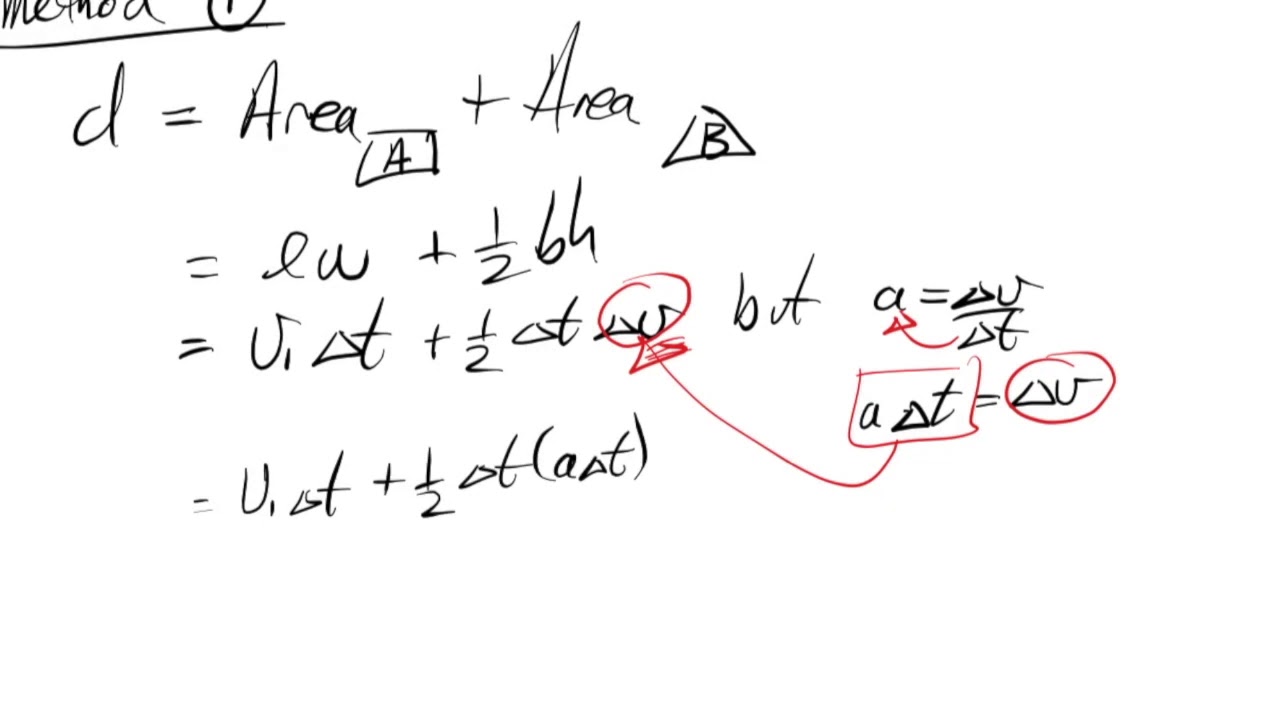 Method ①
d = Area [A] + Area △B
= lw + 1/2 bh
= v₁Δt + 1/2 Δt Δv but a = Δv/Δt
aΔt = Δv
= v₁Δt + 1/2 Δt(aΔt)